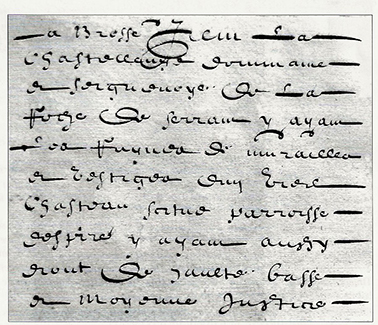 La Brosse Item La
Chastellenye dommaine
et seigneurye de La
Roche de serrant y ayant
Les Ruynes de murailles
et vestiges d'un vieil
Chasteau scitué parroisse
despiré y ayant aussy
droit de haulte basse
et moyenne Justice